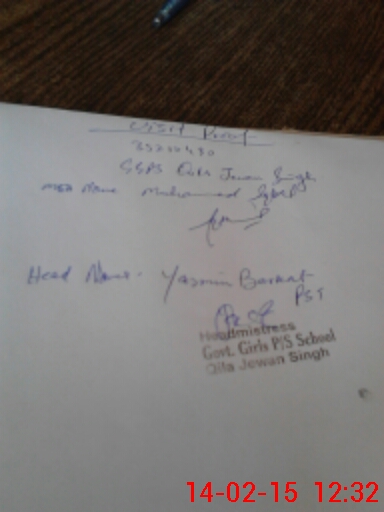 Visit Proof
35220430
GGPS Qila Jewan Singh
MEA Name Muhammad Iqbal
Head Name. Yasmin Barkat
PST
Headmistress
Govt. Girls P/S School
Qila Jewan Singh
14-02-15 12:32